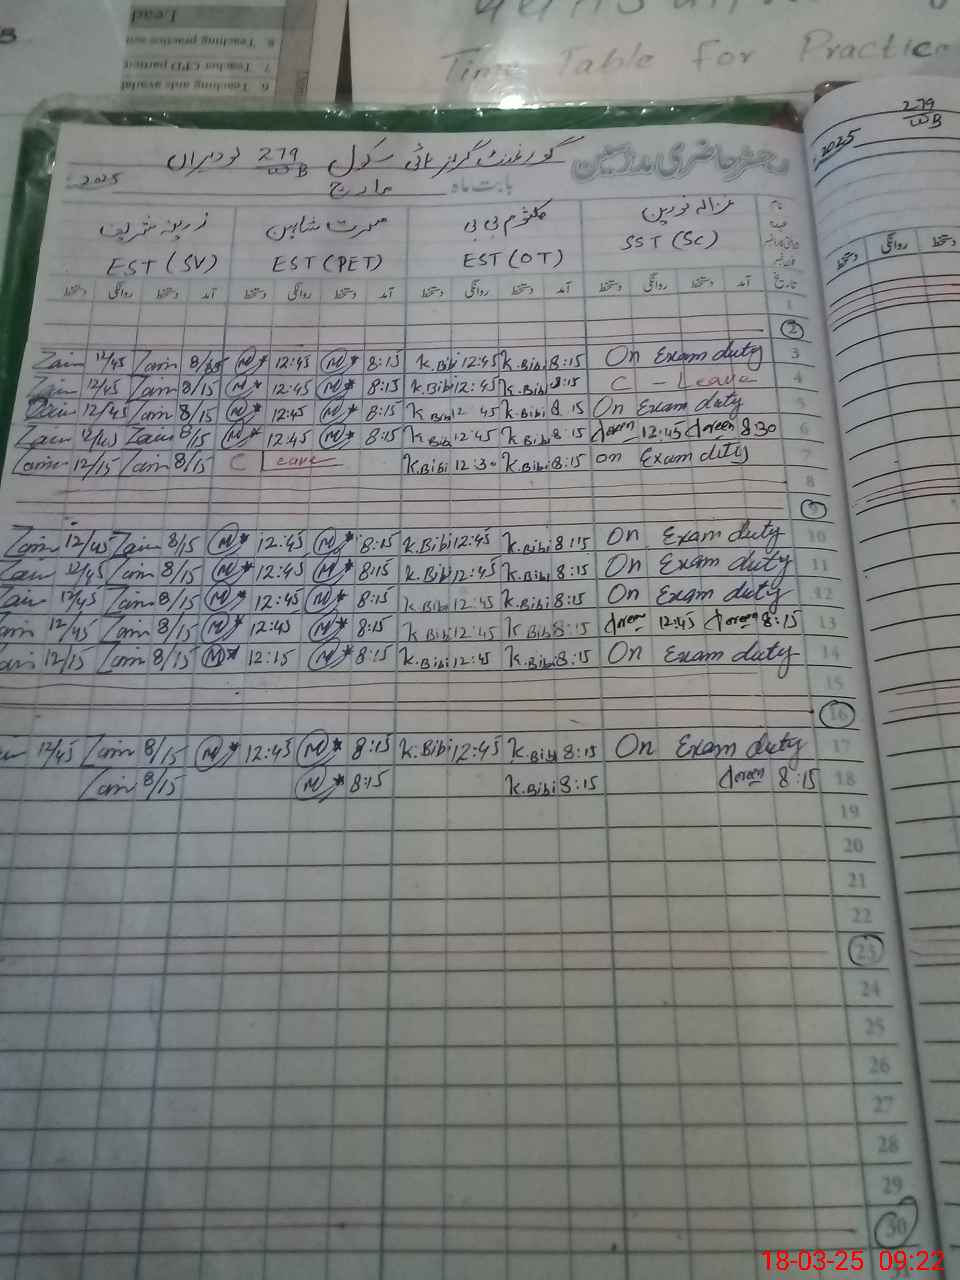 Lead
8 Teaching practice
7 Teacher CPD
6 Teaching aids
Time Table For Practice
279
WB
2025
رجسٹر حاضری مدرسین
گورنمنٹ گرلز ہائی سکول 279 WB
بابت ماہ مارچ 2025
نام
عہدہ
تاریخ
غزالہ نورین
SST (SC)
کلثوم بی بی
EST (OT)
مسرت شاہین
EST (PET)
زرینہ شریف
EST (SV)
آمد دستخط روانگی دستخط آمد دستخط روانگی دستخط آمد دستخط روانگی دستخط آمد دستخط روانگی دستخط
روانگی دستخط
1
2
Zain 12/45 Zain 8/15 M 12:45 M 8:15 K.Bibi 12:45 K.Bibi 8:15 On Exam duty 3
Zain 12/45 Zain 8/15 M 12:45 M 8:15 K.Bibi 12:45 K.Bibi 8:15 C - Leave 4
Zain 12/45 Zain 8/15 M 12:45 M 8:15 K.Bibi 12 45 K.Bibi 8 15 On Exam duty 5
Zain 12/45 Zain 8/15 M 12:45 M 8:15 K.Bibi 12:45 K.Bibi 8:15 12:45 8:30 6
Zain 12/15 Zain 8/15 C Leave K.Bibi 12:30 K.Bibi 8:15 on Exam duty 7
8
9
Zain 12/45 Zain 8/15 M 12:45 M 8:15 K.Bibi 12:45 K.Bibi 8:15 On Exam duty 10
Zain 12/45 Zain 8/15 M 12:45 M 8:15 K.Bibi 12:45 K.Bibi 8:15 On Exam duty 11
Zain 12/45 Zain 8/15 M 12:45 M 8:15 K.Bibi 12:45 K.Bibi 8:15 On Exam duty 12
Zain 12/45 Zain 8/15 M 12:45 M 8:15 K.Bibi 12:45 K.Bibi 8:15 12:45 8:15 13
Zain 12/15 Zain 8/15 M 12:15 M 8:15 K.Bibi 12:45 K.Bibi 8:15 On Exam duty 14
15
16
12/45 Zain 8/15 M 12:45 M 8:15 K.Bibi 12:45 K.Bibi 8:15 On Exam duty 17
Zain 8/15 M 8:15 K.Bibi 8:15 8:15 18
19
20
21
22
23
24
25
26
27
28
29
30
18-03-25 09:22